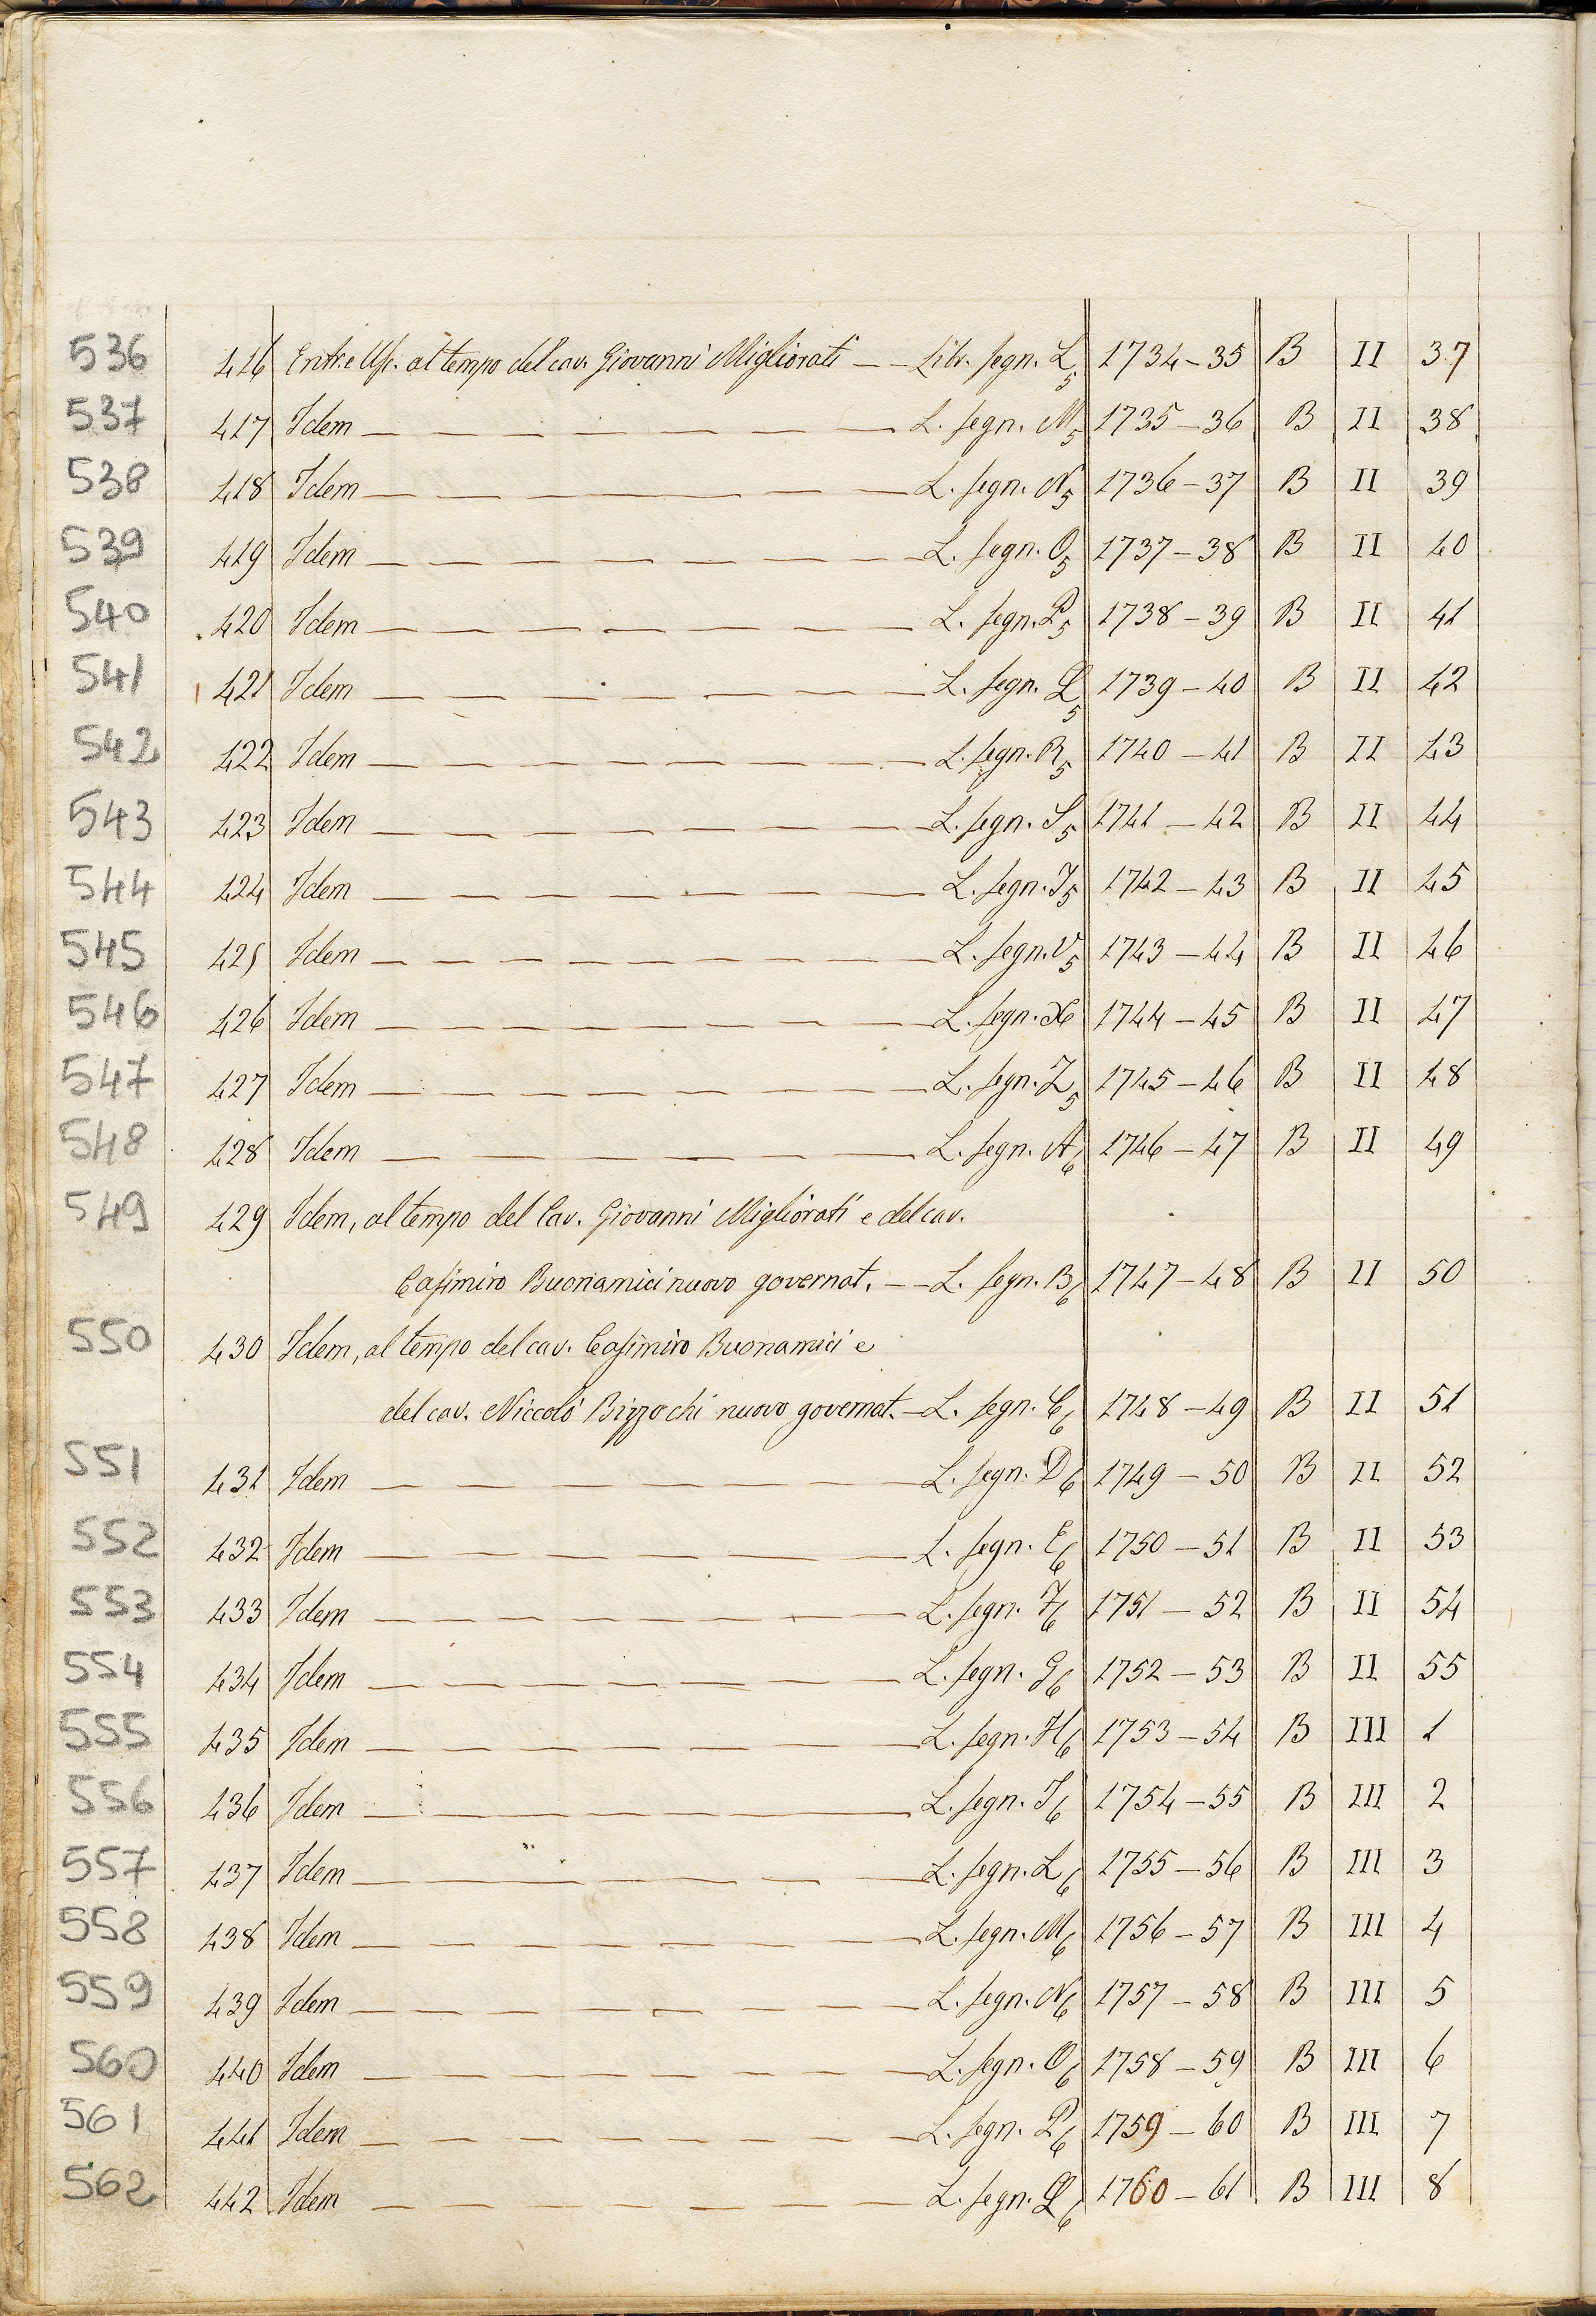 536 416 Entr. e Usc. al tempo del cav. Giovanni Migliorati — — Libr. segn. L5 1734–35 B II 37
537 417 Idem — L. segn. M5 1735–36 B II 38
538 418 Idem — L. segn. N5 1736–37 B II 39
539 419 Idem — L. segn. O5 1737–38 B II 40
540 420 Idem — L. segn. P5 1738–39 B II 41
541 421 Idem — L. segn. Q5 1739–40 B II 42
542 422 Idem — L. segn. R5 1740–41 B II 43
543 423 Idem — L. segn. S5 1741–42 B II 44
544 424 Idem — L. segn. T5 1742–43 B II 45
545 425 Idem — L. segn. V5 1743–44 B II 46
546 426 Idem — L. segn. X 1744–45 B II 47
547 427 Idem — L. segn. Z5 1745–46 B II 48
548 428 Idem — L. segn. A6 1746–47 B II 49
549 429 Idem, al tempo del Cav. Giovanni Migliorati e del cav.
Casimiro Buonamici nuovo governat. — L. segn. B6 1747–48 B II 50
550 430 Idem, al tempo del cav. Casimiro Buonamici e
del cav. Niccolò Bizzochi nuovo governat. — L. segn. C6 1748–49 B II 51
551 431 Idem — L. segn. D6 1749–50 B II 52
552 432 Idem — L. segn. E6 1750–51 B II 53
553 433 Idem — L. segn. F6 1751–52 B II 54
554 434 Idem — L. segn. G6 1752–53 B II 55
555 435 Idem — L. segn. H6 1753–54 B III 1
556 436 Idem — L. segn. I6 1754–55 B III 2
557 437 Idem — L. segn. L6 1755–56 B III 3
558 438 Idem — L. segn. M6 1756–57 B III 4
559 439 Idem — L. segn. N6 1757–58 B III 5
560 440 Idem — L. segn. O6 1758–59 B III 6
561 441 Idem — L. segn. P6 1759–60 B III 7
562 442 Idem — L. segn. Q6 1760–61 B III 8